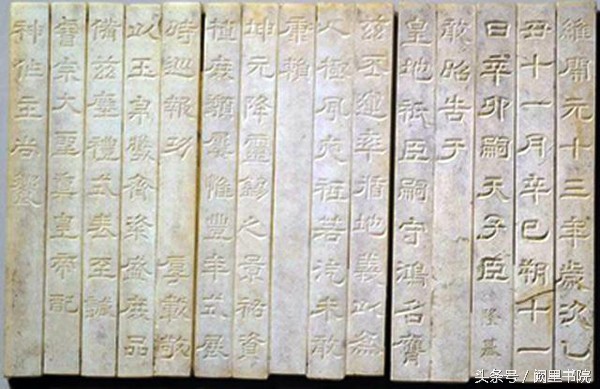 維開元十三年歲次乙
丑十一月辛巳朔十一
日辛卯嗣天子臣隆基
敢昭告于
皇地祇臣嗣守鴻名膺
茲丕運率循地義以為
人極夙夜祗若汔未敢
康賴
坤元降靈錫之景祐資
植庶類屢惟豐年式展
時巡報功 厚載敬
以玉帛犧齊粢盛庶品
備茲瘞禮式表至誠
睿宗大聖真皇帝配
神作主尚饗
头条号 / 阙里书院